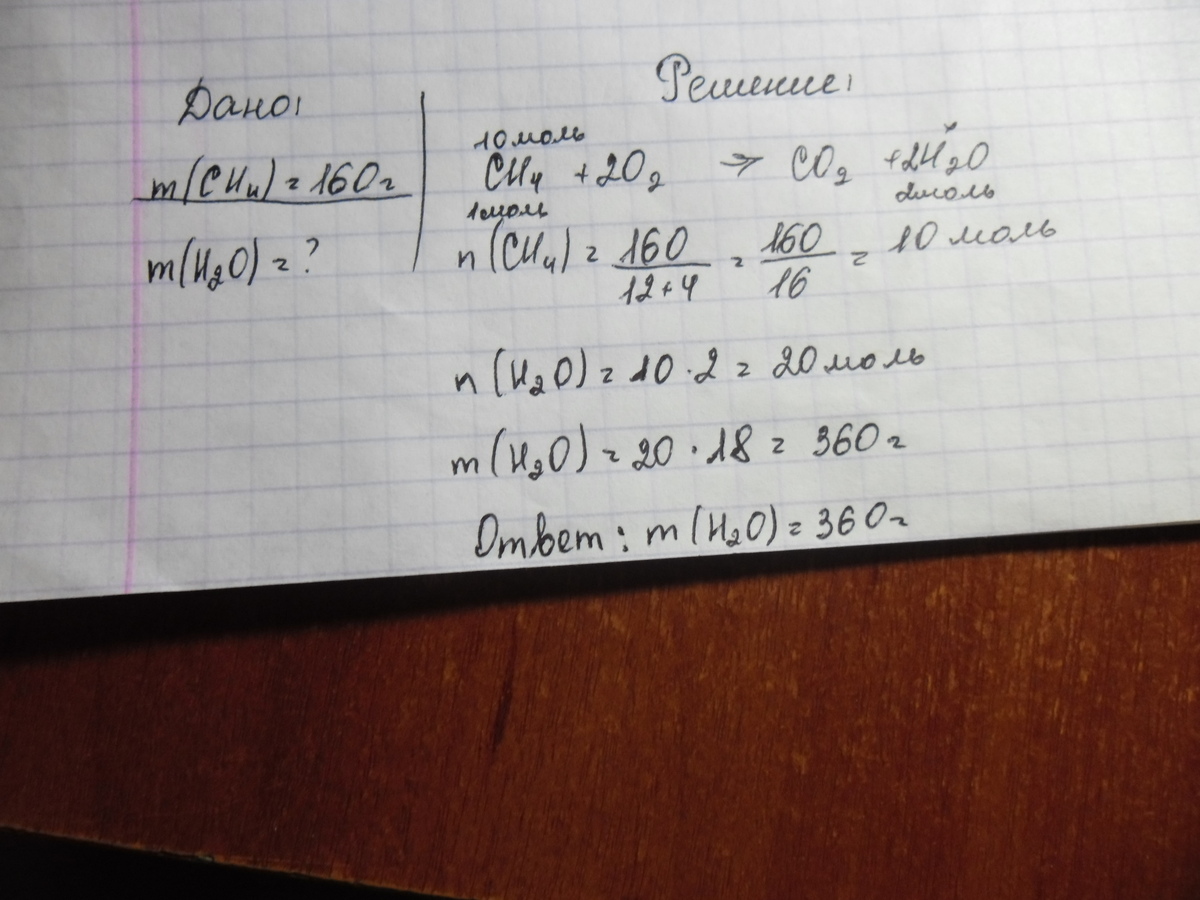 Дано:
m(CH₄) = 160г
m(H₂O) = ?
Решение:
10 моль x
CH₄ + 2O₂ → CO₂ + 2H₂O
1моль 2моль
n(CH₄) = 160/12+4 = 160/16 = 10 моль
n(H₂O) = 10 · 2 = 20 моль
m(H₂O) = 20 · 18 = 360г
Ответ: m(H₂O) = 360г